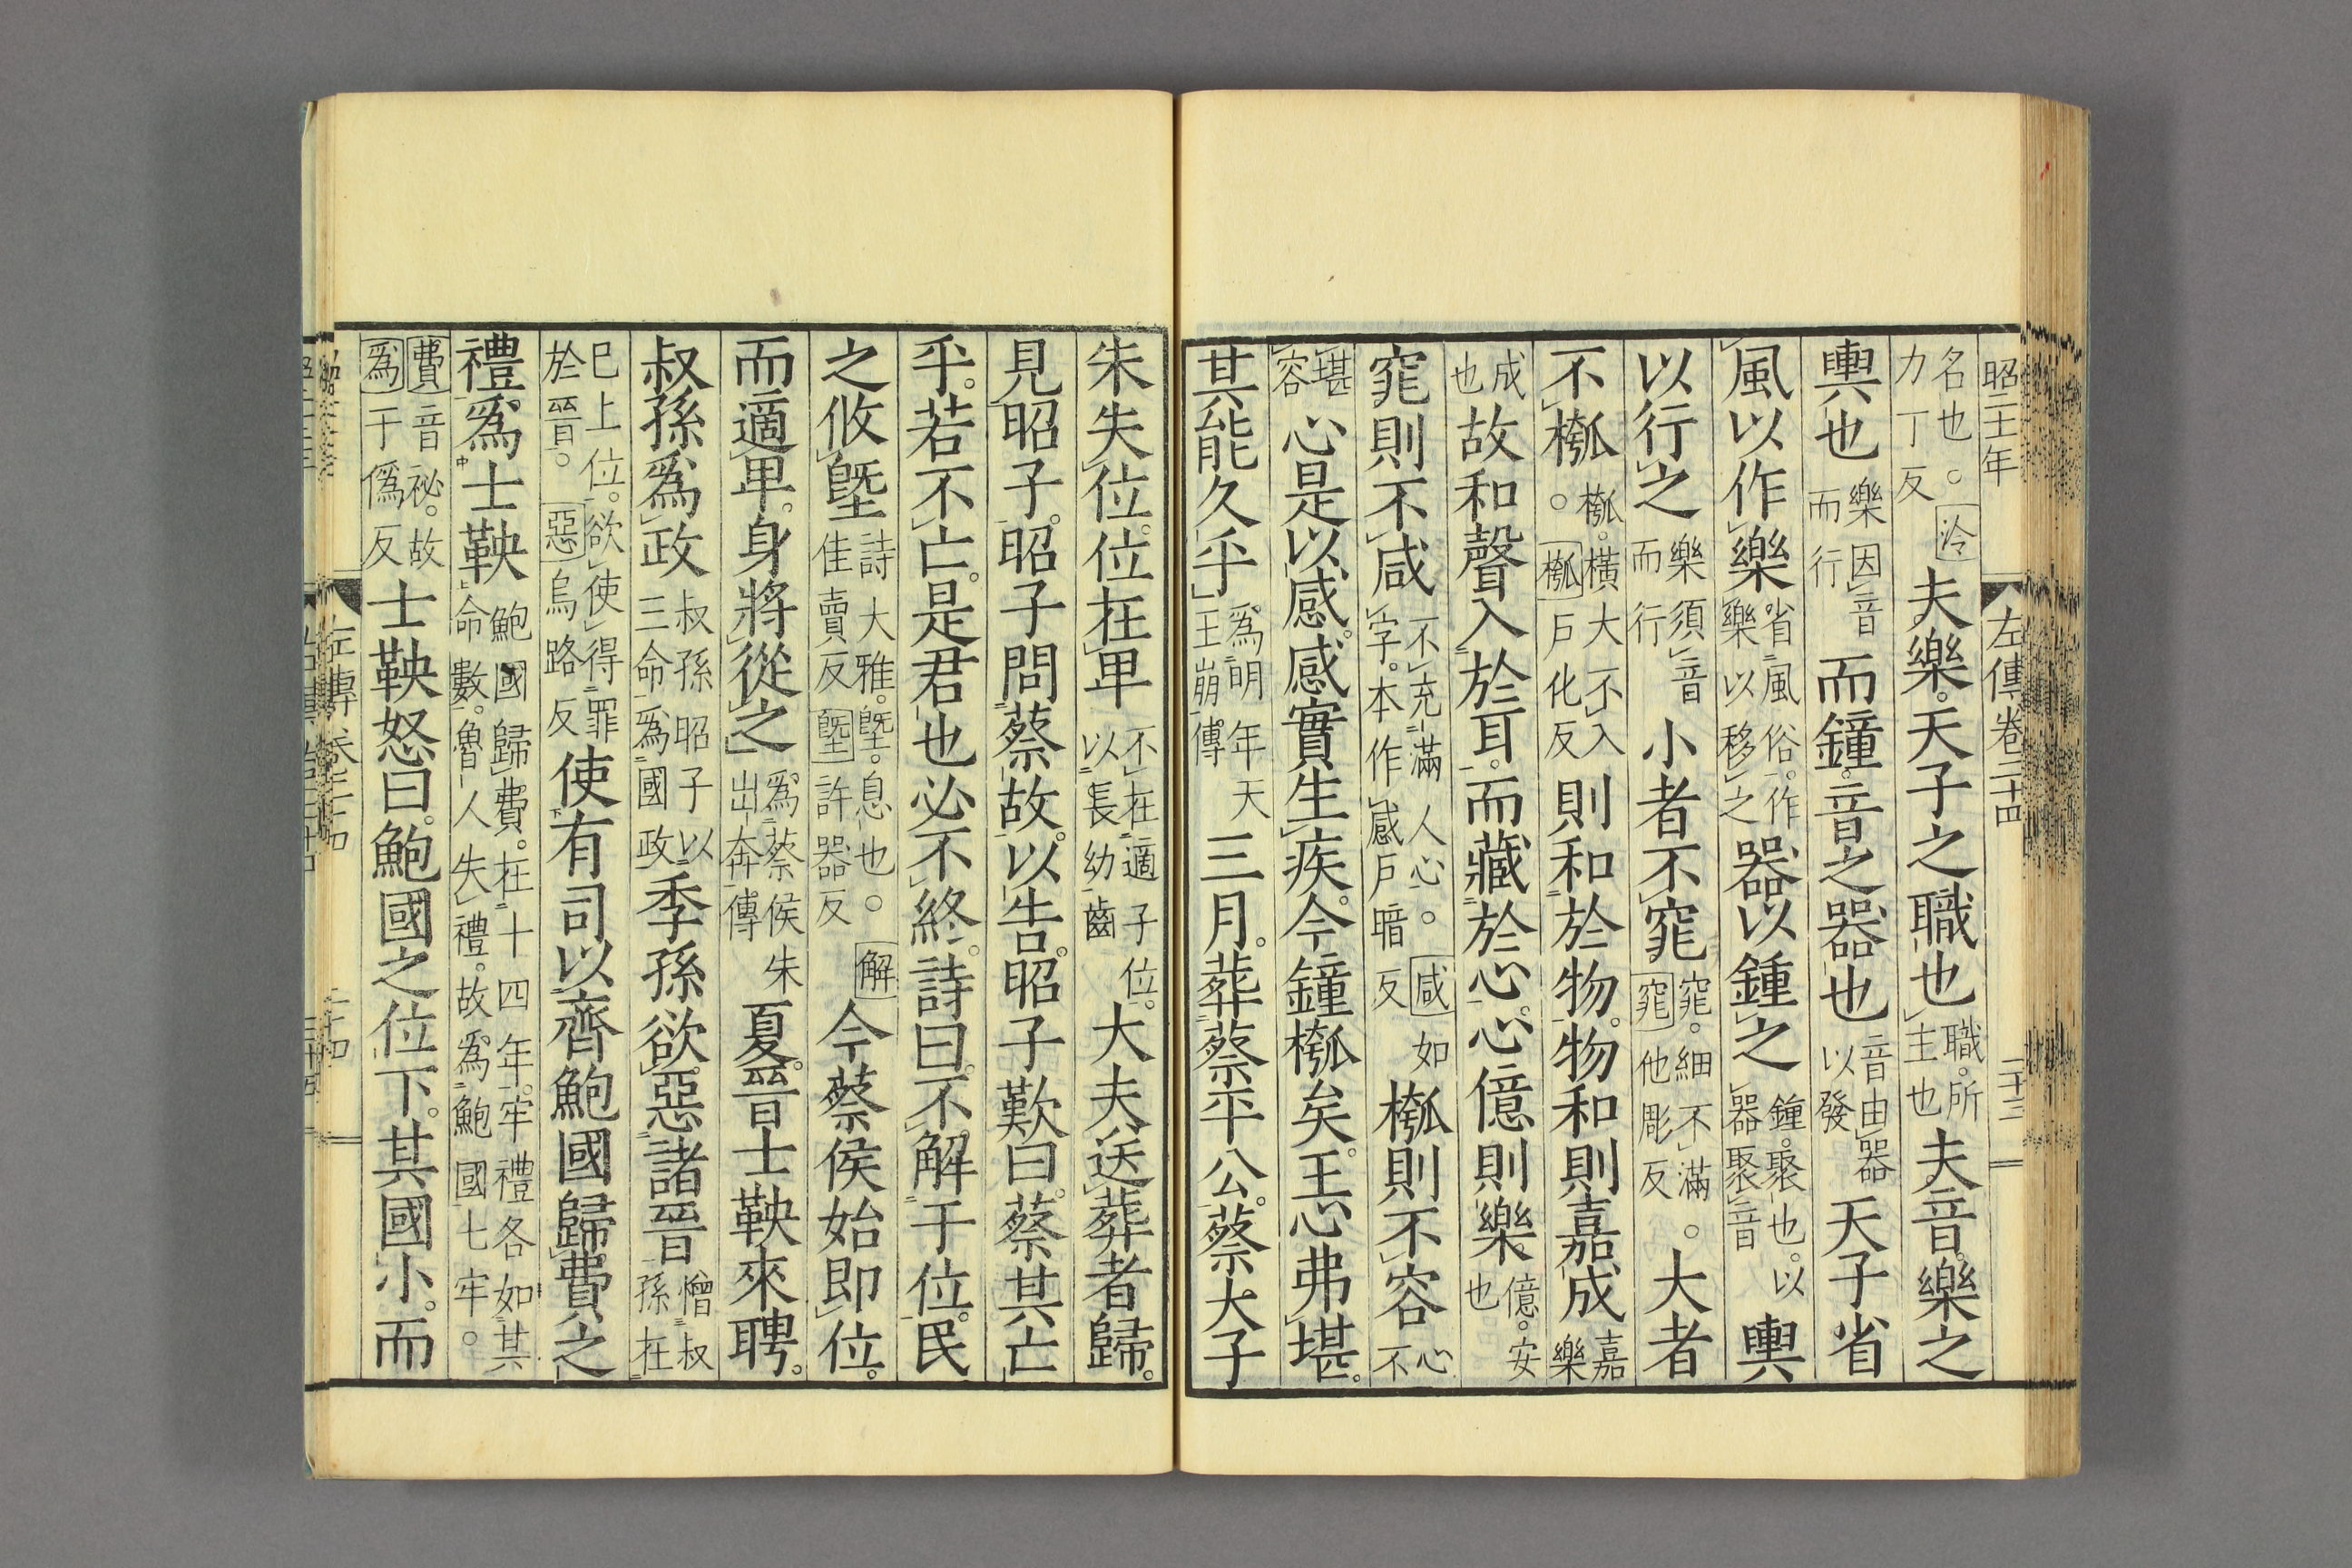 昭二十一年　左傳卷二十四　二十三
名也。泠力丁反夫樂。天子之職也職。所主也夫音。樂之
輿也樂因音而行而鐘。音之器也音由器以發天子省
風以作樂省風俗。作樂以移之器以鍾之鍾。聚也。以器聚音輿
以行之樂須音而行小者不窕窕。細不滿。窕他彫反大者
不槬槬。橫大不入。槬戶化反則和於物。物和則嘉成嘉樂
成也故和聲入於耳。而藏於心。心億則樂億。安也
窕則不咸不充滿人心。咸如字。本作感戶暗反槬則不容心不
堪容心是以感。感實生疾。今鐘槬矣。王心弗堪。
其能久乎爲明年天王崩傳三月。葬蔡平公。蔡大子
朱失位。位在卑不在適子位。以長幼齒大夫送葬者歸。
見昭子。昭子問蔡故。以告。昭子歎曰。蔡其亡
乎。若不亡。是君也必不終。詩曰。不解于位。民
之攸墍詩大雅。墍。息也。解佳賣反墍許器反今蔡侯始即位。
而適卑。身將從之爲蔡侯朱出奔傳夏。晉士鞅來聘。
叔孫爲政叔孫昭子以三命爲國政季孫欲惡諸晉憎叔孫在
已上位。欲使得罪於晉。惡烏路反使有司以齊鮑國歸費之
禮。爲士鞅鮑國歸費。在十四年。牢禮各如其命數。魯人失禮。故爲鮑國七牢。
費音祕。故爲于僞反士鞅怒曰。鮑國之位下。其國小。而